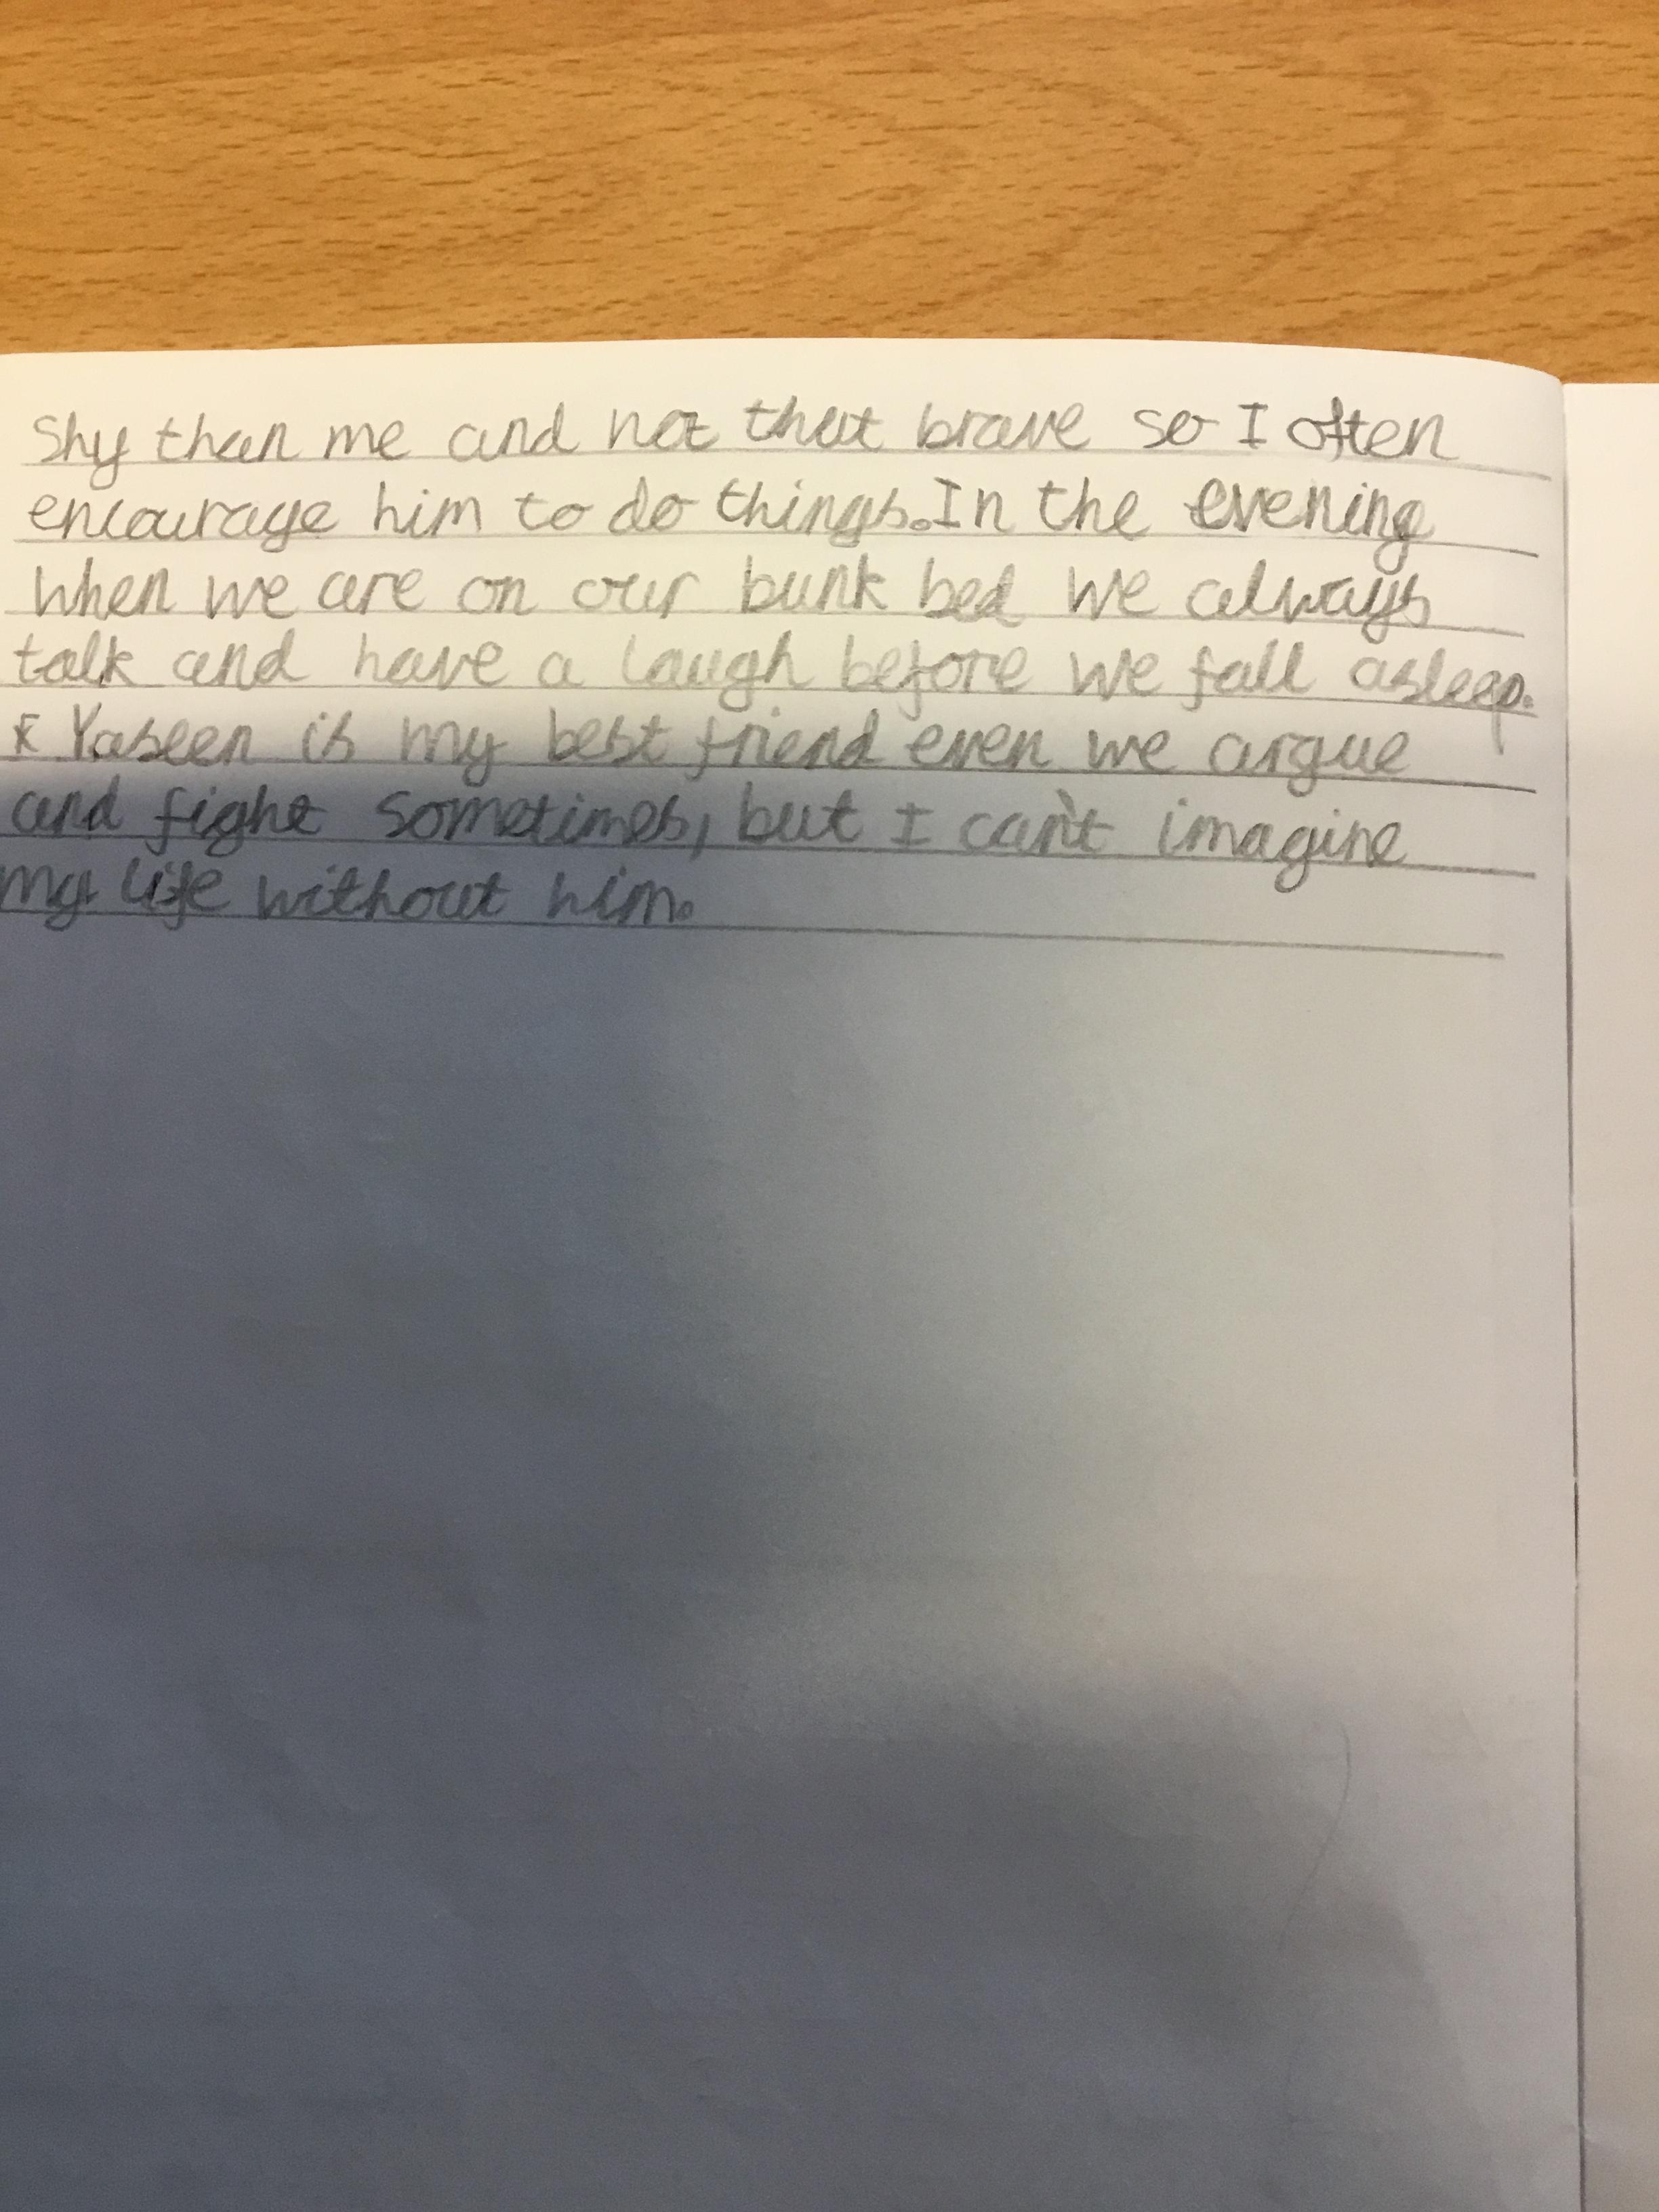 Shy than me and not that brave so I often
encourage him to do things. In the evening
when we are on our bunk bed we always
talk and have a laugh before we fall asleep.
* Yaseen is my best friend even we argue
and fight sometimes, but I can't imagine
my life without him.